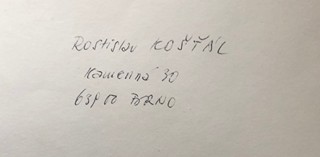 Rostislav KOŠŤÁL
Kamenná 30
639 00 BRNO